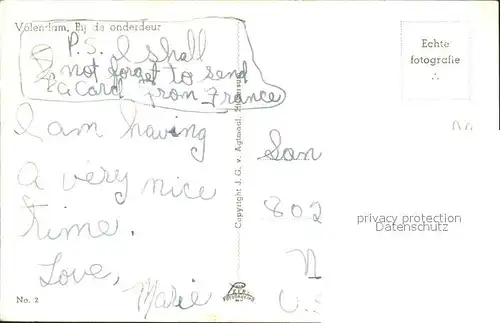 Volendam, Bij de onderdeur
P.S. I shall
not forget to send
a card from France
I am having
a very nice
time.
Love,
Marie
No. 2
Copyright J. G. v. Agtmaal,
Echte
fotografie
San
802
N
U.S
privacy protection
Datenschutz